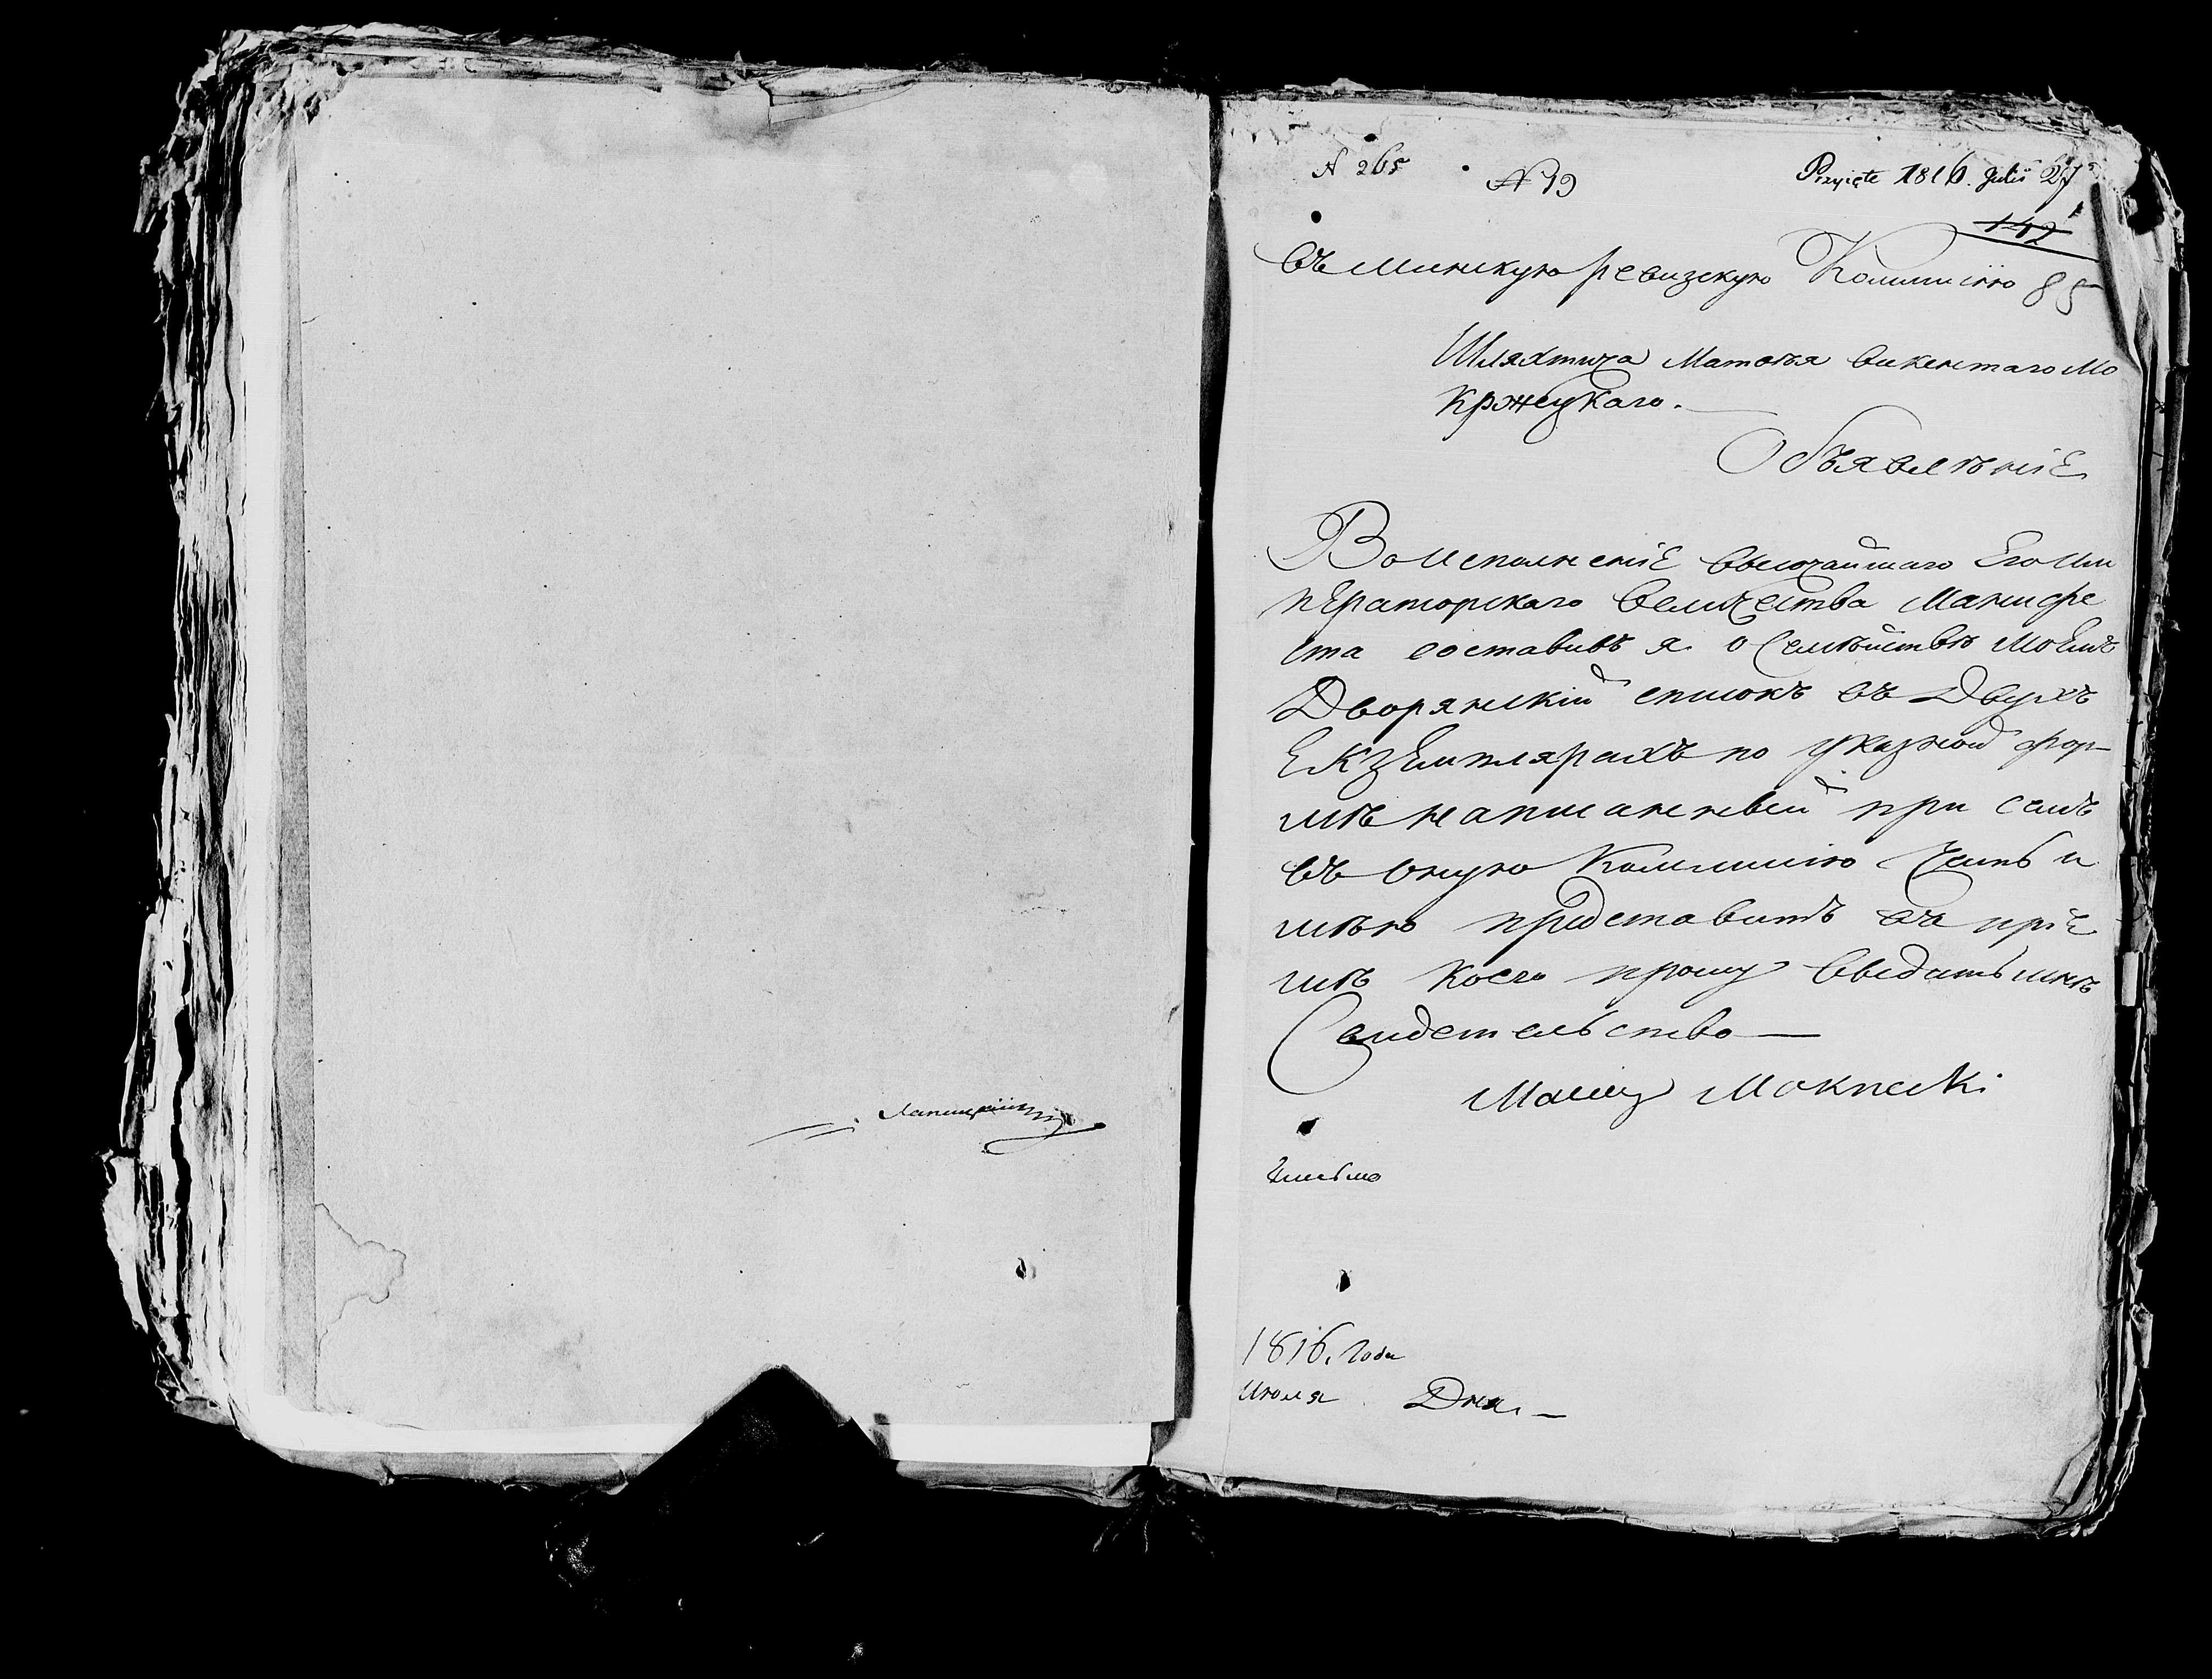 N 265
N 19
Przyięte 1816. Julii 27
142
въ Минскую ревизскую Коммисію 85
Шляхтича Матвѣя Викентаго Мо
Кржецкаго.
Объявлѣніе
Во Исполненіе Высочайшаго Его Им
пЕраторскаго Величества Манифе
ста составивъ я о Семѣйствѣ моЕмъ
Дворянскій списокъ въ Двухъ
ЕкзЕмплярахъ по указной фор-
мѣ написанный при семъ
въ оную Коммисію Честь и
мѣю представить въ пріЕ
мѣ коего прошу выдать мнѣ
Свидетельство
1816. Года
Июля Дня.